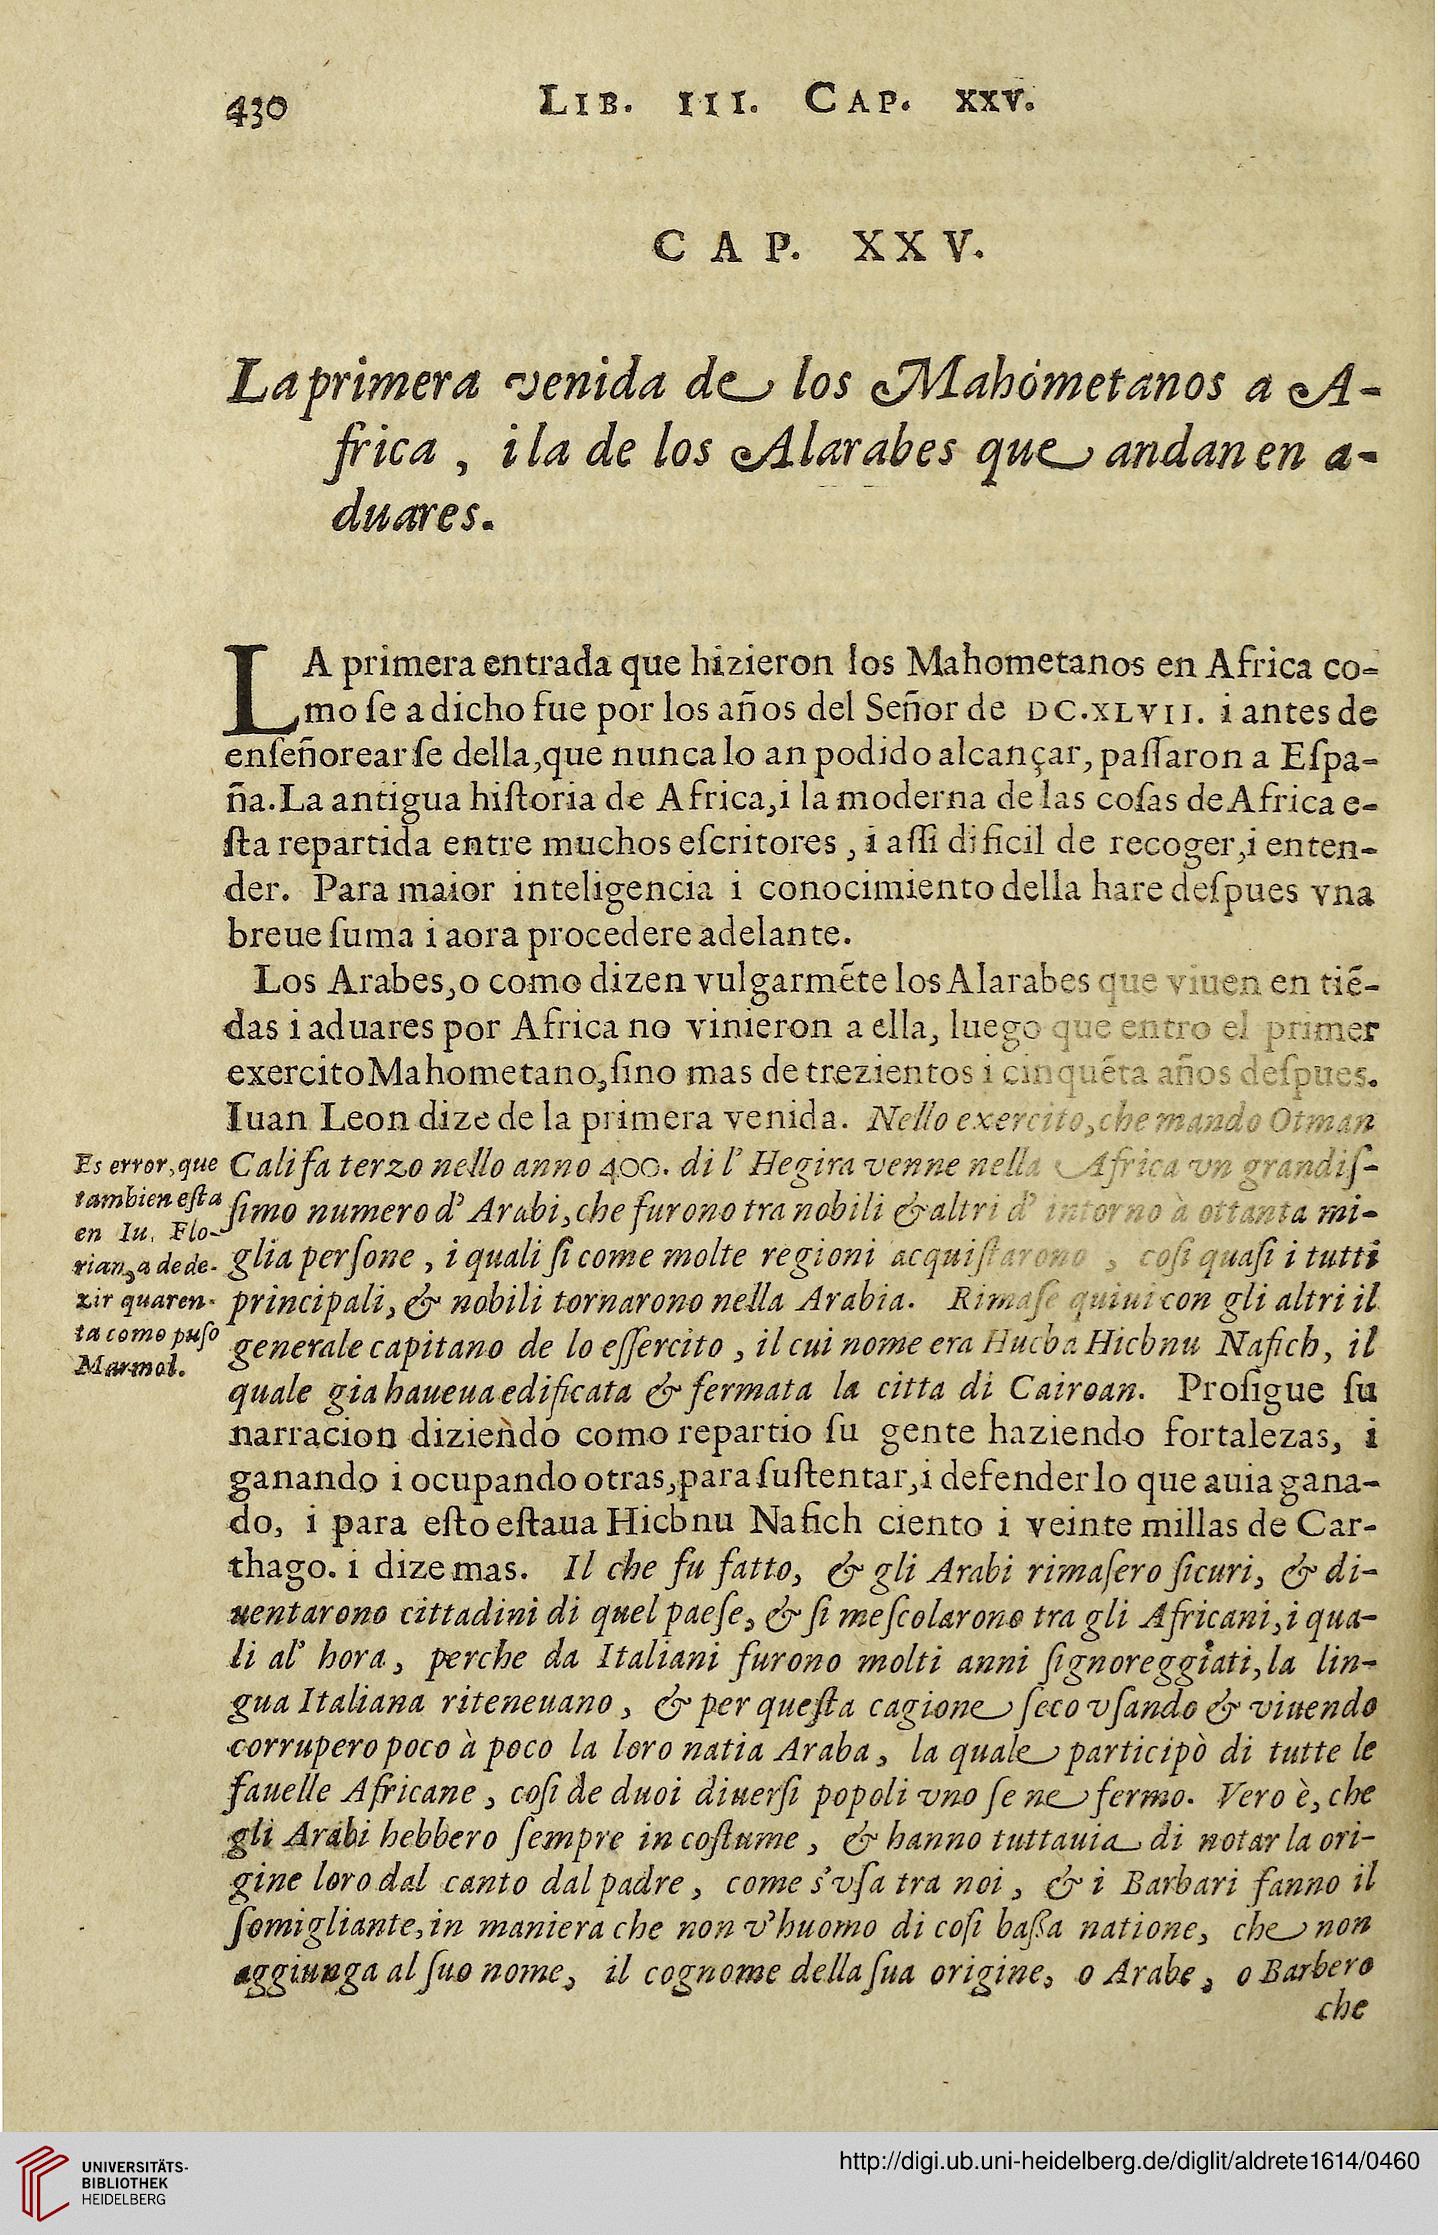 430
LIB. III. CAP. XXV.
CAP. XXV.
La primera venida de los Mahometanos a A-
frica, i la de los Alarabes que andan en a-
duares.
LA primera entrada que hizieron los Mahometanos en Africa co-
mo ſe a dicho fue por los años del Señor de DC.XLVII. i antes de
enſeñorearſe della,que nunca lo an podido alcançar, paſſaron a Eſpa-
ña.La antigua hiſtoria de Africa,i la moderna de las coſas de Africa e-
ſta repartida entre muchos eſcritores , i aſſi dificil de recoger,i enten-
der. Para maior inteligencia i conocimiento della hare deſpues vna
breue ſuma i aora procedere adelante.
Los Arabes,o como dizen vulgarmẽte los Alarabes que viuen en tiẽ-
das i aduares por Africa no vinieron a ella, luego que entro el primer
exercito Mahometano,ſino mas de trezientos i cinquẽta años deſpues.
Iuan Leon dize de la primera venida. Nello exercito,che mando Otman
Califa terzo nello anno 400. di l' Hegira venne nella Africa vn grandiſ-
ſimo numero d' Arabi,che furono tra nobili & altri d' intorno à ottanta mi-
glia perſone , i quali ſi come molte regioni acquiſtarono , coſi quaſi i tutti
principali, & nobili tornarono nella Arabia. Rimaſe quiui con gli altri il
generale capitano de lo eſſercito , il cui nome era Hucba Hicbnu Nafich, il
quale gia haueua edificata & fermata la citta di Cairoan. Proſigue ſu
narracion diziendo como repartio ſu gente haziendo fortalezas, i
ganando i ocupando otras,para ſuſtentar,i defender lo que auia gana-
do, i para eſto eſtaua Hicbnu Nafich ciento i veinte millas de Car-
thago. i dize mas. Il che fu fatto, & gli Arabi rimaſero ſicuri, & di-
uentarono cittadini di quel paeſe, & ſi meſcolarono tra gli Africani,i qua-
li al' hora , perche da Italiani furono molti anni ſignoreggiati,la lin-
gua Italiana riteneuano , & per queſta cagione ſeco vſando & viuendo
corrupero poco à poco la loro natia Araba , la quale participò di tutte le
fauelle Africane , coſi de duoi diuerſi popoli vno ſe ne fermo. Vero è, che
gli Arabi hebbero ſempre in coſtume , & hanno tuttauia di notar la ori-
gine loro dal canto dal padre , come s'vſa tra noi , & i Barbari fanno il
ſomigliante,in maniera che non v'huomo di coſi baſſa natione, che non
aggiunga al ſuo nome, il cognome della ſua origine, o Arabe , o Barbero
che
Es error,que
tambien eſta
en Iu. Flo-
rian,a de de-
zir quaren-
ta como puſo
Marmol.
UNIVERSITÄTS-
BIBLIOTHEK
HEIDELBERG
http://digi.ub.uni-heidelberg.de/diglit/aldrete1614/0460